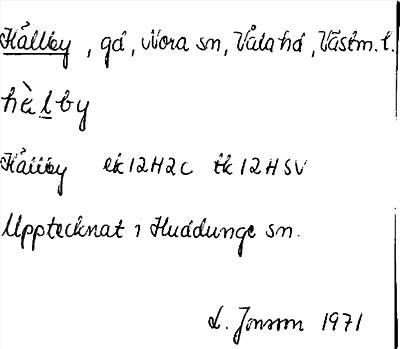 Hållby, gd, Nora sn, Våla hd, Västm. l.
hàlby
Hållby ek 12H2c tk 12H SV
Upptecknat i Huddunge sn.
L. Jonsson 1971